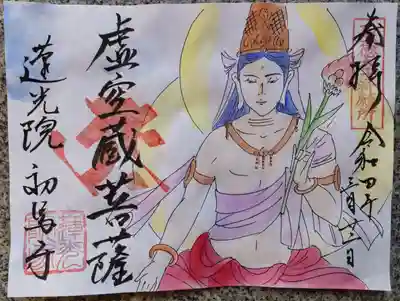 奉拝
令和四年
虚空蔵菩薩
蓮光院 初馬寺